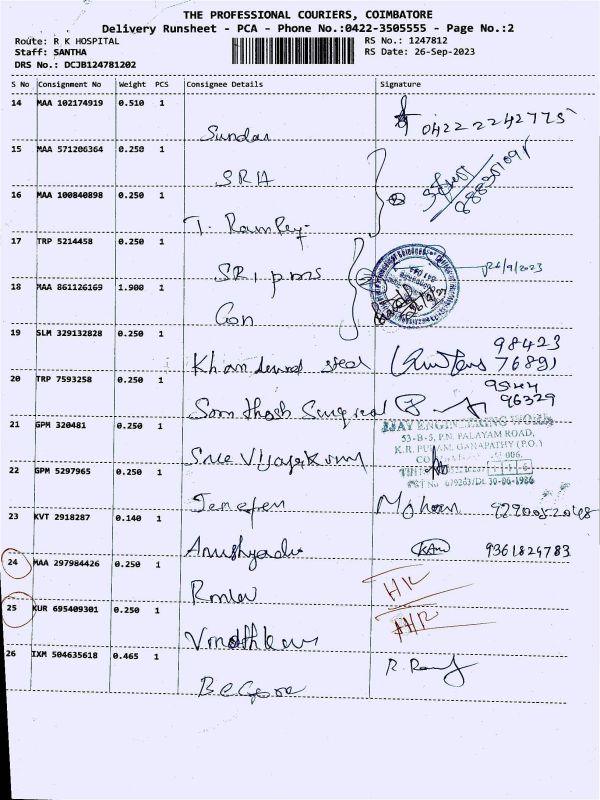 THE PROFESSIONAL COURIERS, COIMBATORE
Delivery Runsheet - PCA - Phone No.:0422-3505555 - Page No.:2
Route: R K HOSPITAL
Staff: SANTHA
DRS No.: DCJB124781202
RS No.: 1247812
RS Date: 26-Sep-2023
S No Consignment No Weight PCS Consignee Details Signature
14 MAA 102174919 0.510 1
Sundar 04222242775
15 MAA 571206364 0.250 1
SRH
16 MAA 100840898 0.250 1
T.
17 TRP 5214458 0.250 1
SRI 26/9/2023
18 MAA 861126169 1.900 1
Con
19 SLM 329132828 0.250 1
98423
Khandewal steel 76891
20 TRP 7593258 0.250 1
96329
Santhosh
21 GPM 320481 0.250 1
VIJAY ENGINEERING WORK
53-B-5, P.N. PALAYAM ROAD,
K.R. PURAM, GANAPATHY (P.O.)
006.
Sree Vijayakumar
22 GPM 5297965 0.250 1
Mohan
23 KVT 2918287 0.140 1
9361824783
24 MAA 297984426 0.250 1
HR
25 KUR 695409301 0.250 1
HR
26 IXM 504635618 0.465 1
R.